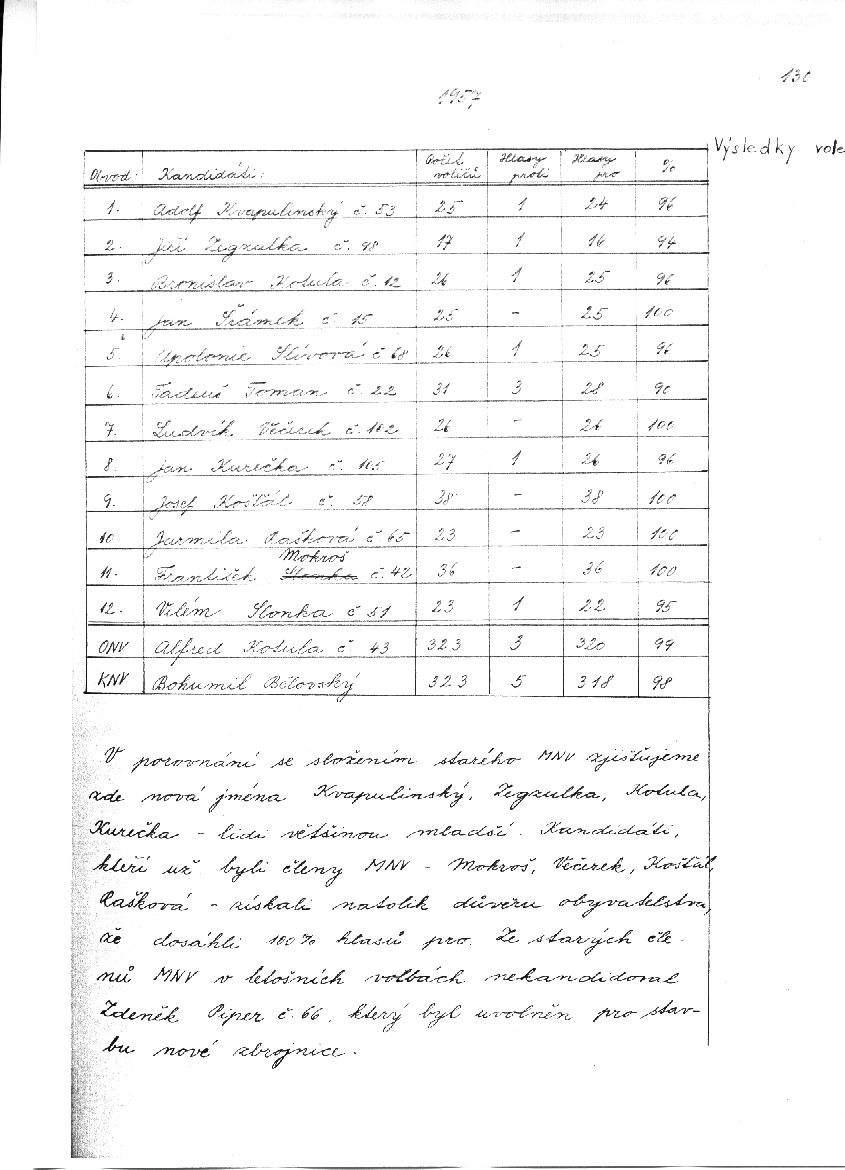 130
1957
Výsledky vole
Obvod: Kandidáti: Počet voličů Hlasy proti Hlasy pro %
1. Adolf Kvapulinský č. 53 25 1 24 96
2. Jiří Zegzulka č. 98 17 1 16 94
3. Bronislav Kotula č. 12 26 1 25 96
4. Jan Šrámek č 15 25 - 25 100
5. Apolonie Slívová č 68 26 1 25 96
6. Tadeuš Toman č. 22 31 3 28 90
7. Ludvík Večerek č. 102 26 - 26 100
8. Jan Kurečka č. 105 27 1 26 96
9. Josef Košťál č. 58 38 - 38 100
10 Jarmila Rašková č. 65 23 - 23 100
Mokroš
11. František Slonka č. 42 36 - 36 100
12. Vilém Slonka č 51 23 1 22 95
ONV Alfred Kotula č. 43 323 3 320 99
KNV Bohumil Bělovský 323 5 318 98
V porovnání se složením starého MNV zjišťujeme
zde nová jména Kvapulinský, Zegzulka, Kotula,
Kurečka - lidi většinou mladší. Kandidáti,
kteří už byli členy MNV - Mokroš, Večerek, Košťál,
Rašková - získali natolik důvěru obyvatelstva,
že dosáhli 100% hlasů pro. Ze starých čle-
nů MNV v letošních volbách nekandidoval
Zdeněk Piper č. 66, který byl uvolněn pro stav-
bu nové zbrojnice.